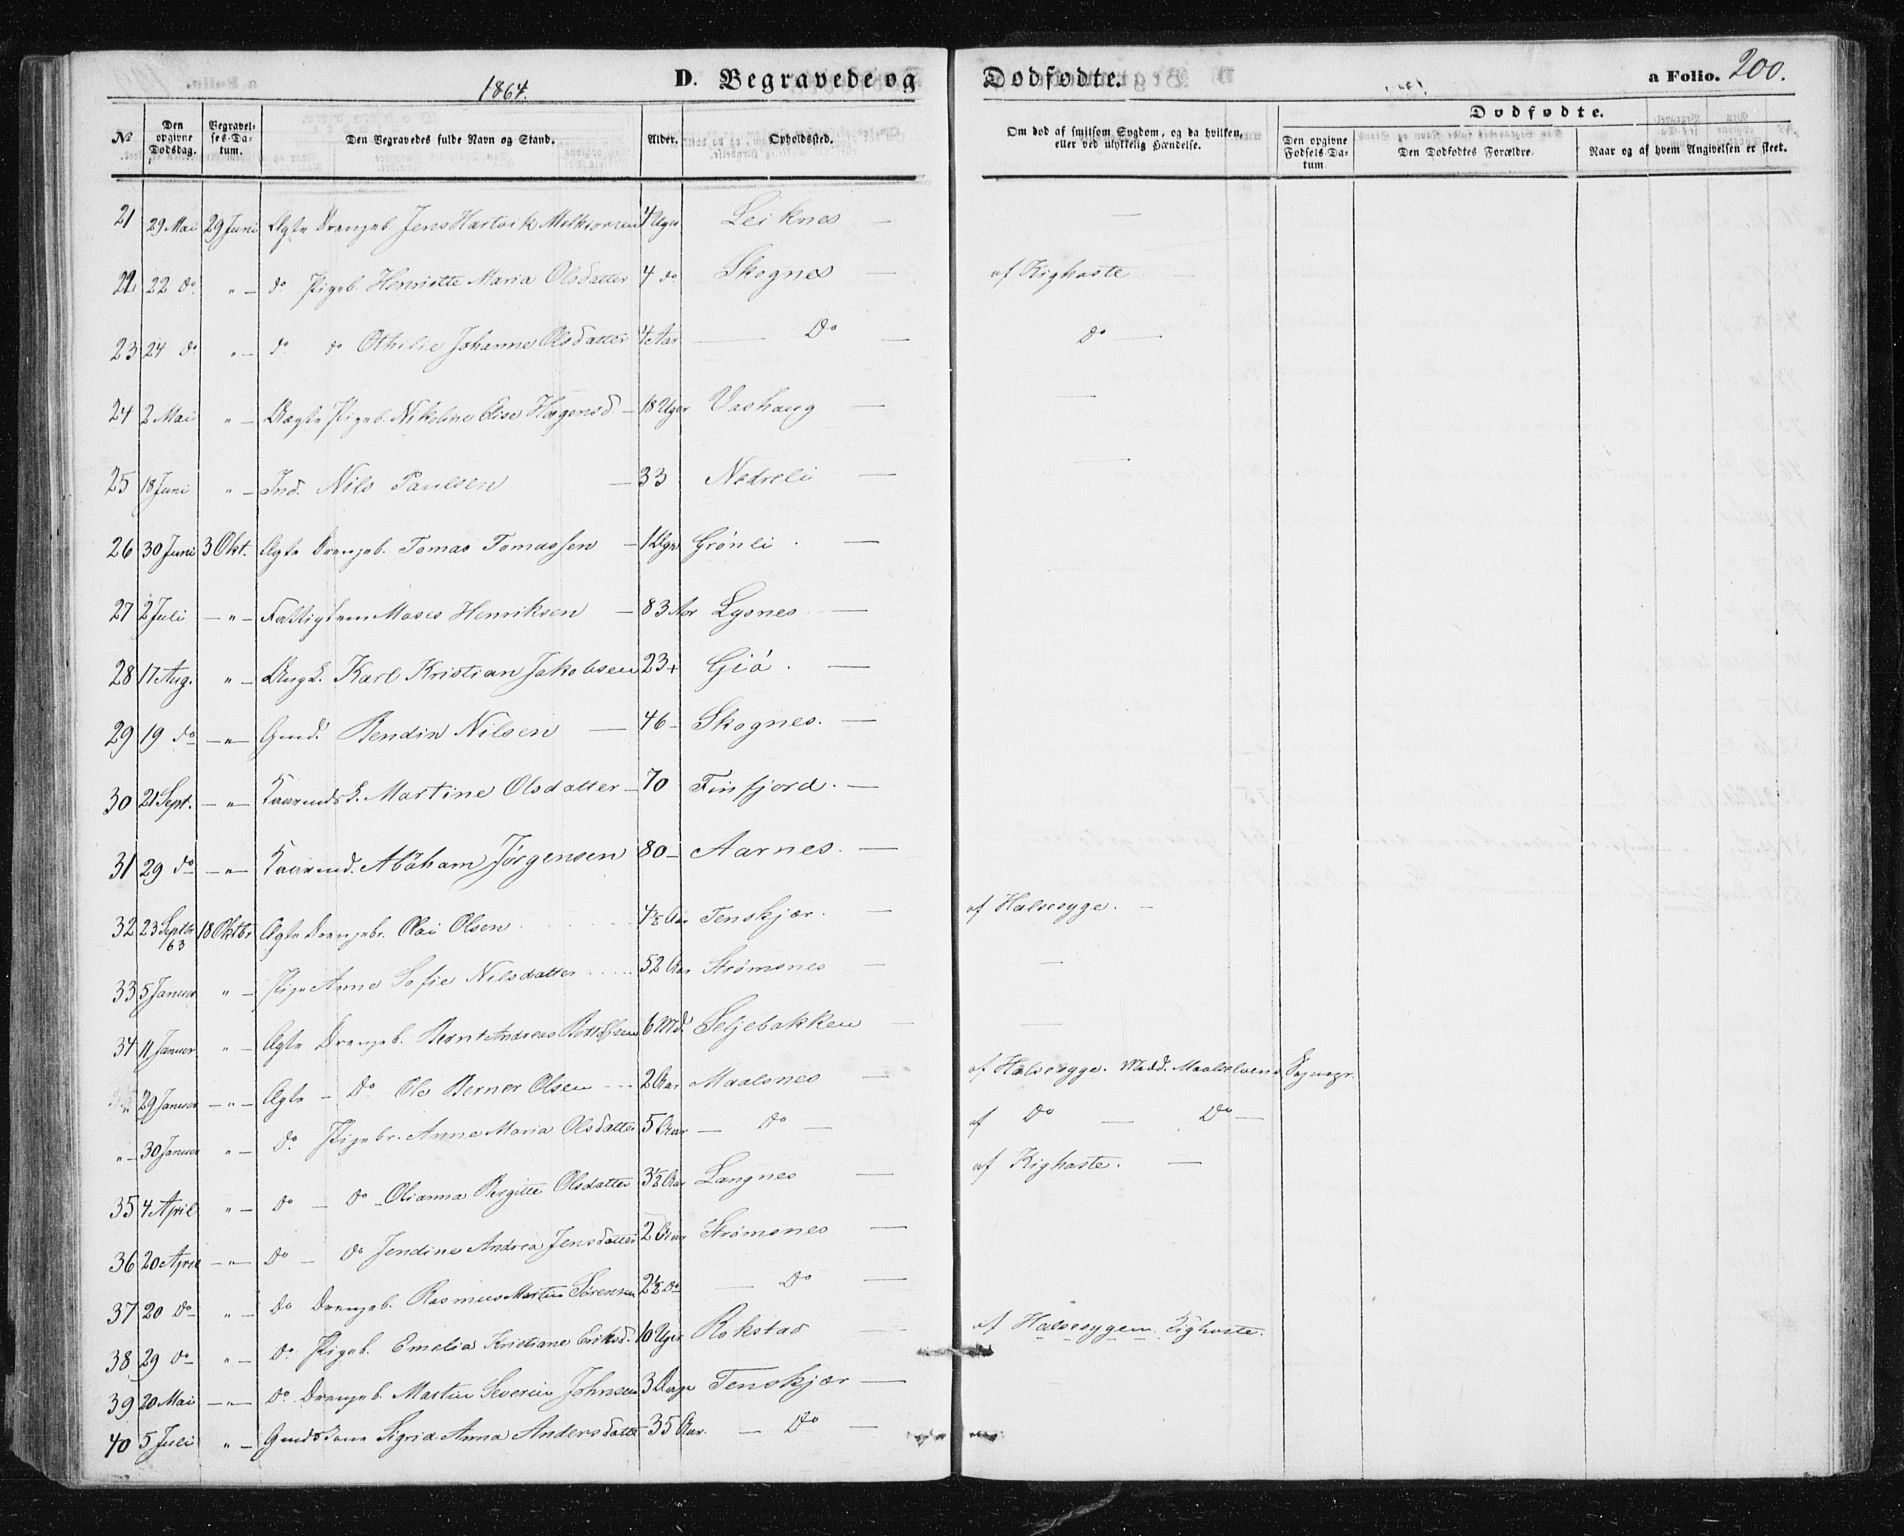 1864.
D. Begravede og Dødfødte.
a Folio. 200.
№ Den opgivne Dødsdag. Begravelses-Datum. Den Begravedes fulde Navn og Stand. Alder. Opholdssted. Om død af smitsom Sygdom, og da hvilken, eller ved ulykkelig Hændelse. Dødfødte. Den opgivne Fødsels-Datum Den Dødfødtes Forældre. Naar og af hvem Angivelsen er skeet.
21 29 Mai 29 Juni Ægte Drengeb. Jens Hartvik 4 Uger Leiknes —
22 do " — do Pigeb. Henriette Maria Olsdatter 4 do Skognes — af Kighoste —
23 24 do " — do do Othilie Johanne Olsdatter 4 Aar — Do — Do —
24 2 Mai " — Uægte Pigeb. Nikoline Elise Hagensd — 18 Uger Vashaug —
25 18 Juni " — Ind. Nils Paulsen — 33 Nedreli —
26 30 Juni 3 Okt. Ægte Drengeb. Tomas Tomassen — 1 Uger Grönli . —
27 2 Juli — " — Fattiglem Moses Henriksen — 83 Aar Lysnes —
28 17 Aug. " — Ungk. Karl Kristian Jakobsen 23 + Giö . —
29 19 do — " — Gmd. Bendix Nilsen — 46 — Skognes. —
30 21 Sept. — " — Kaarmdsk. Martine Olsdatter — 70 Finfjord. —
31 29 do — " — Kaarmd. Abraham Jørgensen 80 — Aarnes. —
32 23 Septbr 63 18 Oktbr. Ægte Drengebr. Olai Olsen 4½ Aar Tenskjær. — af Halssyge. —
33 5 Januar " — Pige Anne Sofie Nilsdatter 52 Aar Strømsnes —
34 11 Januar " — Ægte Drengeb. Bernt Andreas 6 Md. Seljebakken —
" 29 Januar — " — Ægte — Do Ole Berner Olsen 2 Aar Maalsnes — af Halssyge. Maalselvens Sognegr.
" — 30 Januar " — do Pigebr. Anne Maria Olsdatter 5 Aar — Do — af Do — Do —
35 4 April " — Do — Do — Olianna Bergitte Olsdatter 3½ Aar Langnes — af Kighoste. —
36 20 April — " — Do — Do Jendine Andrea Jensdatter 2 Aar Strømsnes —
37 20 Do " — Do Drengeb. Rasmus Martin Sørensen 2½ Do — Do —
38 29 Do " — Do Pigeb. Emelia Kristiane Eriksd. 10 Uger Rokstad af Halssygen. Kighoste.
39 20 Mai — " — Do Drengeb. Martin Severin Johnsen 3 Dage Tenskjær —
40 5 Juli " — Gmdskone Sigrid Anna Andersdatter 35 Aar. — Do —